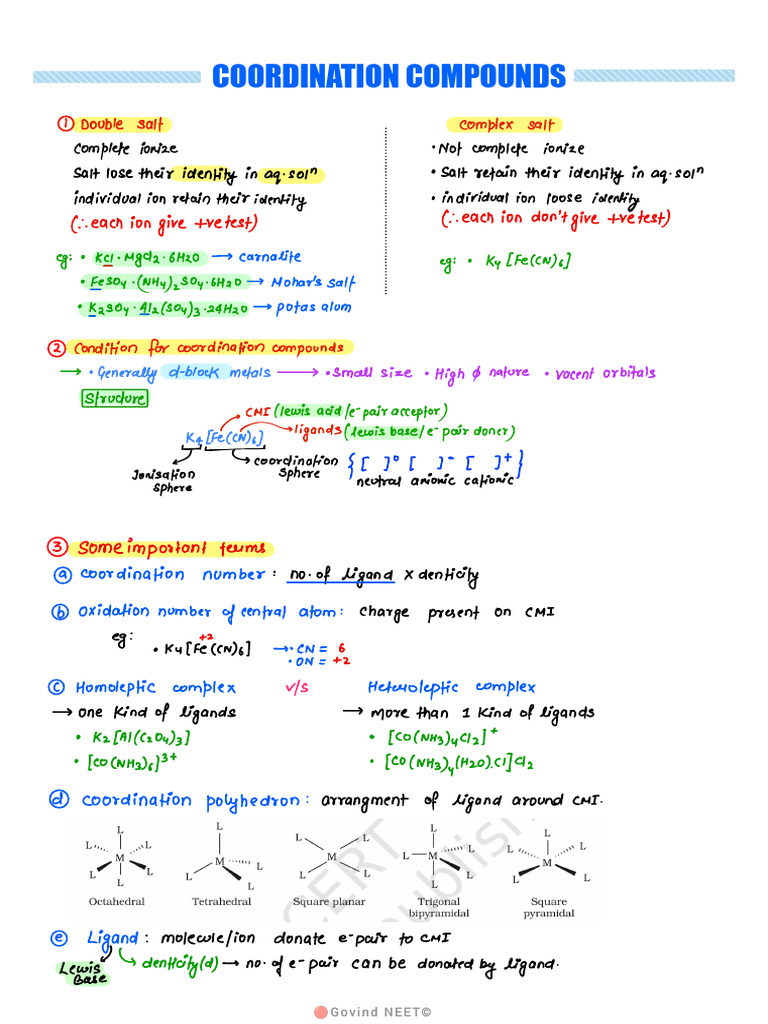 COORDINATION COMPOUNDS
① Double salt
complete ionize
salt lose their identity in aq.solⁿ
individual ion retain their identity
(∴each ion give +ve test)
eg: • KCl·MgCl2·6H2O → carnalite
• FeSO4·(NH4)2SO4·6H2O → Mohar's salt
• K2SO4·Al2(SO4)3·24H2O → potas alum
complex salt
• Not complete ionize
• Salt retain their identity in aq.solⁿ
• individual ion loose identity
(∴each ion don't give +ve test)
eg: • K4[Fe(CN)6]
② condition for coordination compounds
→ • Generally d-block metals → • Small size • High ϕ nature • vocent orbitals
Structure
CMI (lewis acid/e⁻pair acceptor)
ligands (lewis base/e⁻pair doner)
K4[Fe(CN)6]
Ionisation sphere
coordination sphere
{[ ]⁰ [ ]⁻ [ ]⁺}
neutral anionic cationic
③ Some important terms
ⓐ coordination number: no.of ligand x denticity
ⓑ Oxidation number of central atom: charge present on CMI
+2
eg: • K4[Fe(CN)6] → • CN = 6
• ON = +2
ⓒ Homoleptic complex v/s Heteroleptic complex
→ one kind of ligands → more than 1 kind of ligands
• K2[Al(C2O4)3] • [CO(NH3)4Cl2]⁺
• [CO(NH3)6]³⁺ • [CO(NH3)4(H2O).Cl]Cl2
ⓓ coordination polyhedron: arrangment of ligand around CMI.
L L L M L L L
L M L L L
L L M L L
L L M L L L
L L L M L L
Octahedral Tetrahedral Square planar Trigonal bipyramidal Square pyramidal
ⓔ Ligand: molecule/ion donate e-pair to CMI
Lewis Base
denticity(d) → no.of e-pair can be donated by ligand.
Govind NEET©